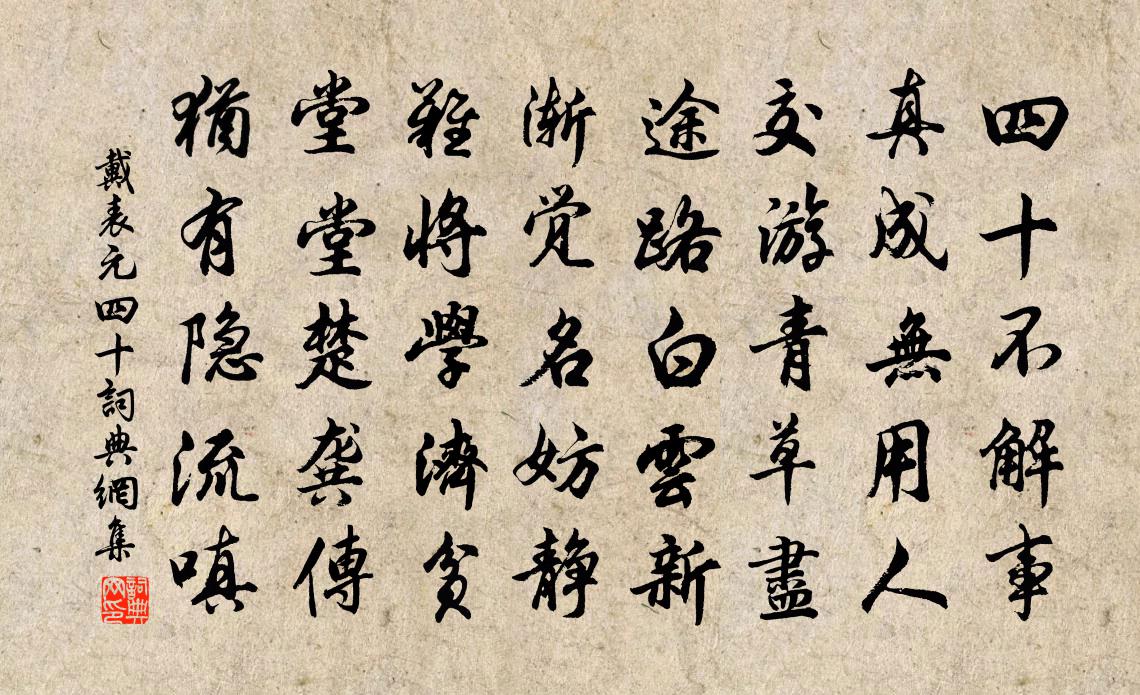 四十不解事
真成無用人
交游青草盡
途路白雲新
漸觉名妨静
難將學濟貧
堂堂楚龔傳
猶有隐流嗔
戴表元四十詞典網集
詞典
网印